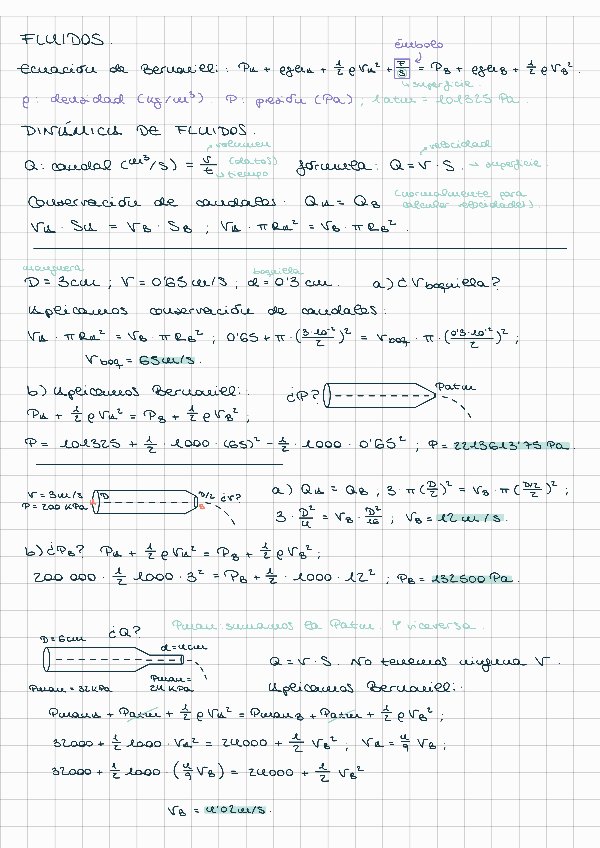 FLUIDOS.
émbolo
Ecuación de Bernoulli: P_A + ρgh_A + 1/2 ρ V_A² + F/S = P_B + ρgh_B + 1/2 ρ V_B².
superficie.
ρ: densidad (kg/m³) P: presión (Pa), 1atm = 101325 Pa.
DINÁMICA DE FLUIDOS.
volumen velocidad
Q: caudal (m³/s) = V/t (datos) fórmula: Q = V · S. → superficie.
tiempo
Conservación de caudales. Q_A = Q_B (normalmente para calcular velocidades).
V_A · S_A = V_B · S_B ; V_A · π R_A² = V_B · π R_B².
manguera boquilla
D = 3cm ; V = 0'65 m/s ; d = 0'3 cm. a) ¿V boquilla?
Aplicamos conservación de caudales:
V_A · π R_A² = V_B · π R_B² ; 0'65 + π · (3·10⁻²/2)² = V_boq · π · (0'3·10⁻²/2)² ;
V_boq = 65m/s.
b) Aplicamos Bernoulli: ¿P? Patm
P_A + 1/2 ρ V_A² = P_B + 1/2 ρ V_B² ;
P = 101325 + 1/2 · 1000 · (65)² - 1/2 · 1000 · 0'65² ; P = 2213613'75 Pa.
V = 3m/s D D/2 ¿V?
P = 200 KPa A B
a) Q_A = Q_B , 3 · π (D/2)² = V_B · π (D/2/2)² ;
3 · D²/4 = V_B · D²/16 ; V_B = 12 m/s.
b) ¿P_B? P_A + 1/2 ρ V_A² = P_B + 1/2 ρ V_B² ;
200 000 · 1/2 1000 · 3² = P_B + 1/2 · 1000 · 12² ; P_B = 132500 Pa.
Pman sumamos la Patm. Y viceversa.
D = 6cm ¿Q? d = 4cm
Pman = 32KPa Pman = 24 KPa
Q = V · S. No tenemos ninguna V.
Aplicamos Bernoulli:
Pman_A + Patm + 1/2 ρ V_A² = Pman_B + Patm + 1/2 ρ V_B² ;
32000 + 1/2 1000 · V_A² = 24000 + 1/2 V_B² , V_A = 4/9 V_B ;
32000 + 1/2 1000 · (4/9 V_B) = 24000 + 1/2 V_B²
V_B = 4'02m/s.